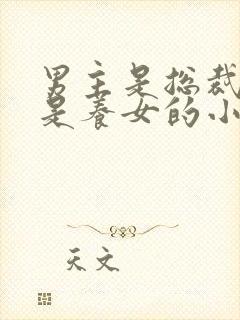 男主是总裁
是养女的小
天文